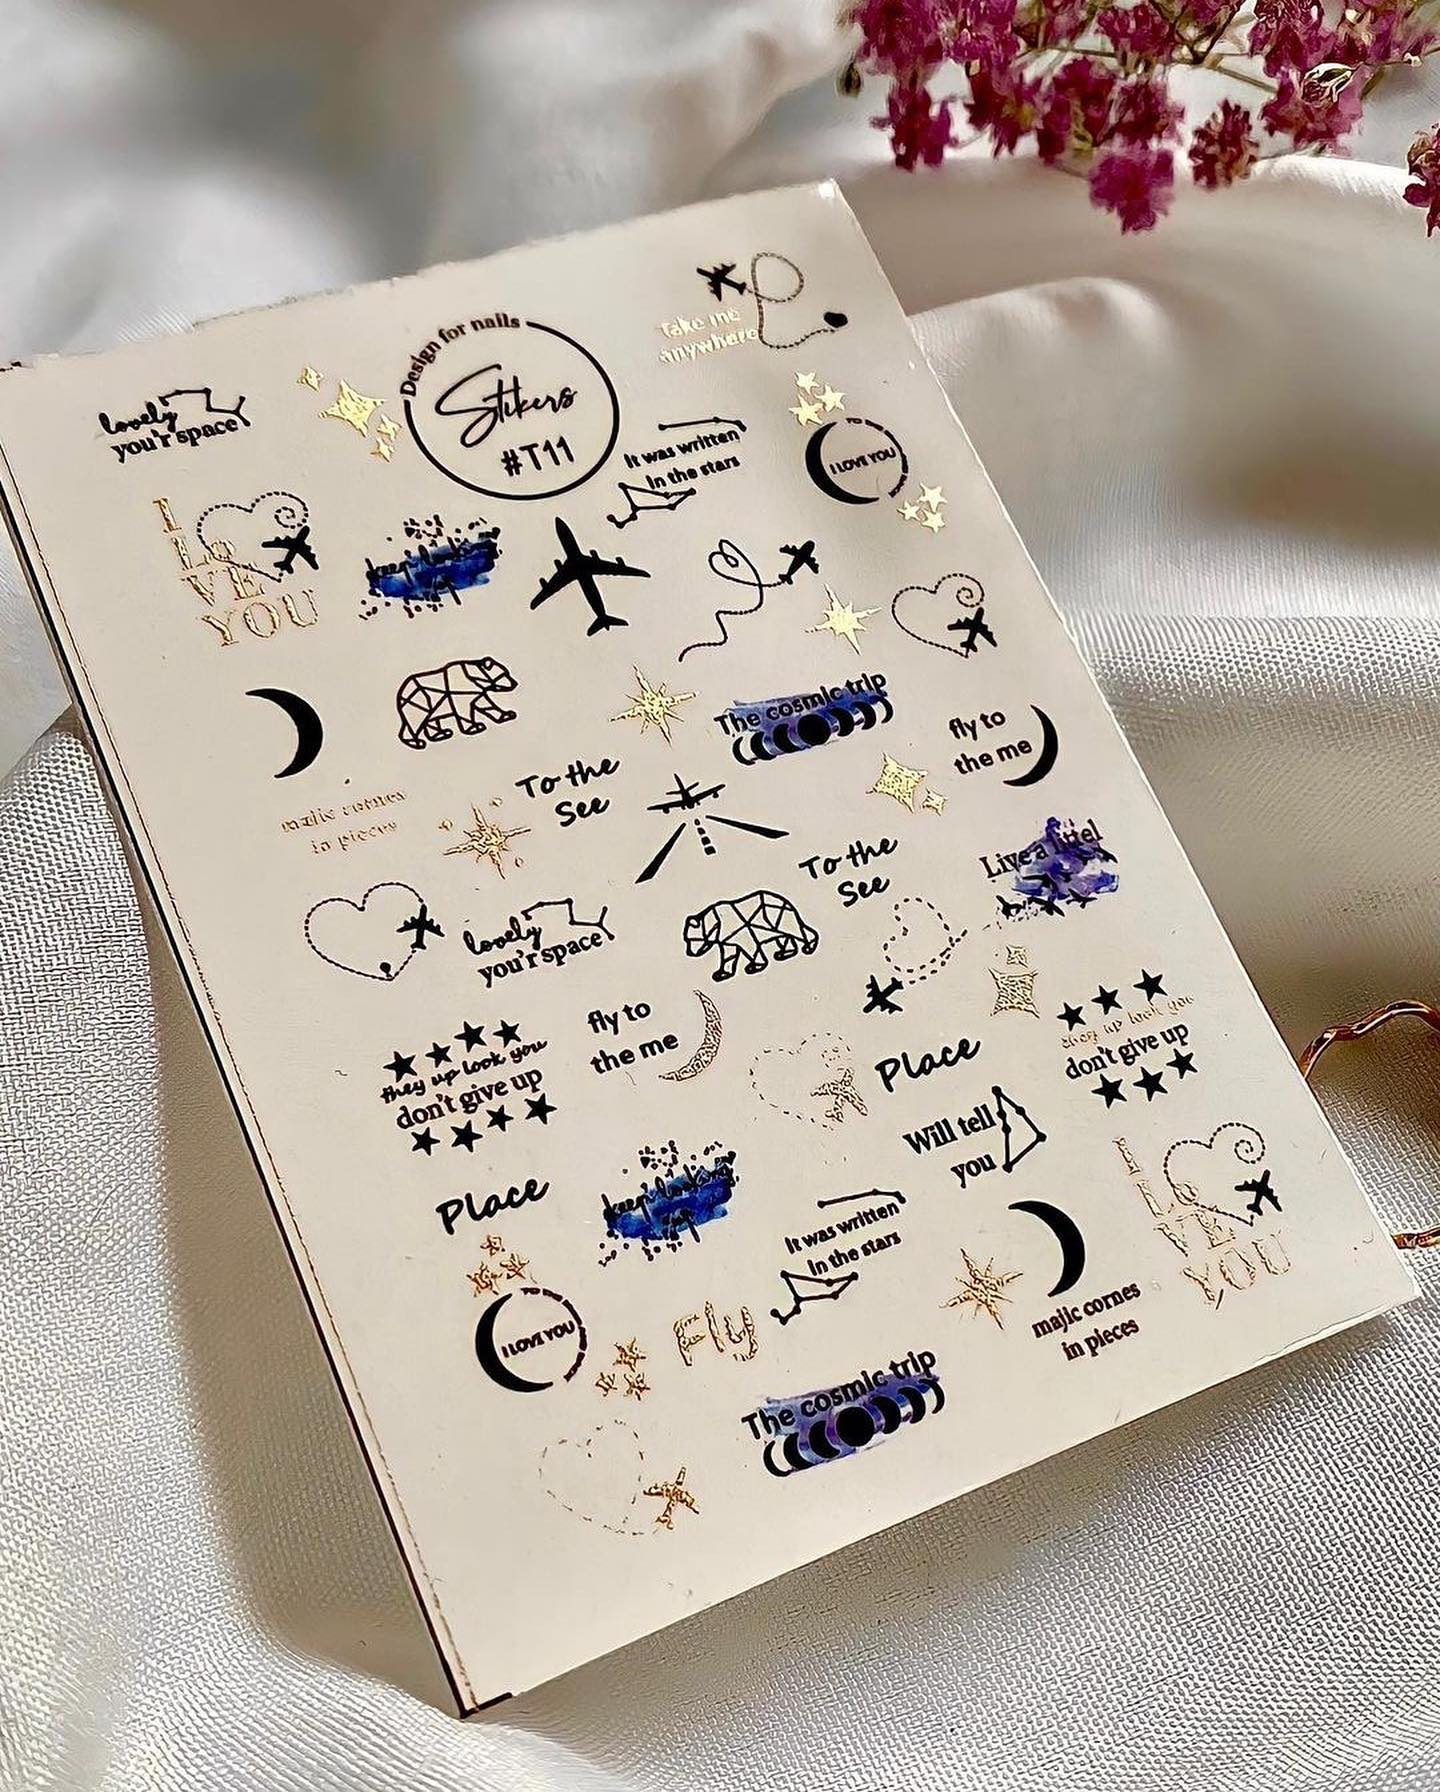 Take me
anywhere
Design for nails
Stikers
#T11
lovely
you'r space
It was written
In the stars
I LOVE YOU
I
Lo
VE
YOU
keep looking
up
The cosmic trip
fly to
the me
To the
See
majic cornes
in pieces
To the
See
Live a littel
lovely
you'r space
fly to
the me
they up look you
don't give up
they up look you
don't give up
Place
Will tell
you
Place
keep looking
up
It was written
In the stars
I
Lo
VE
YOU
I LOVE YOU
Fly
majic cornes
in pieces
The cosmic trip